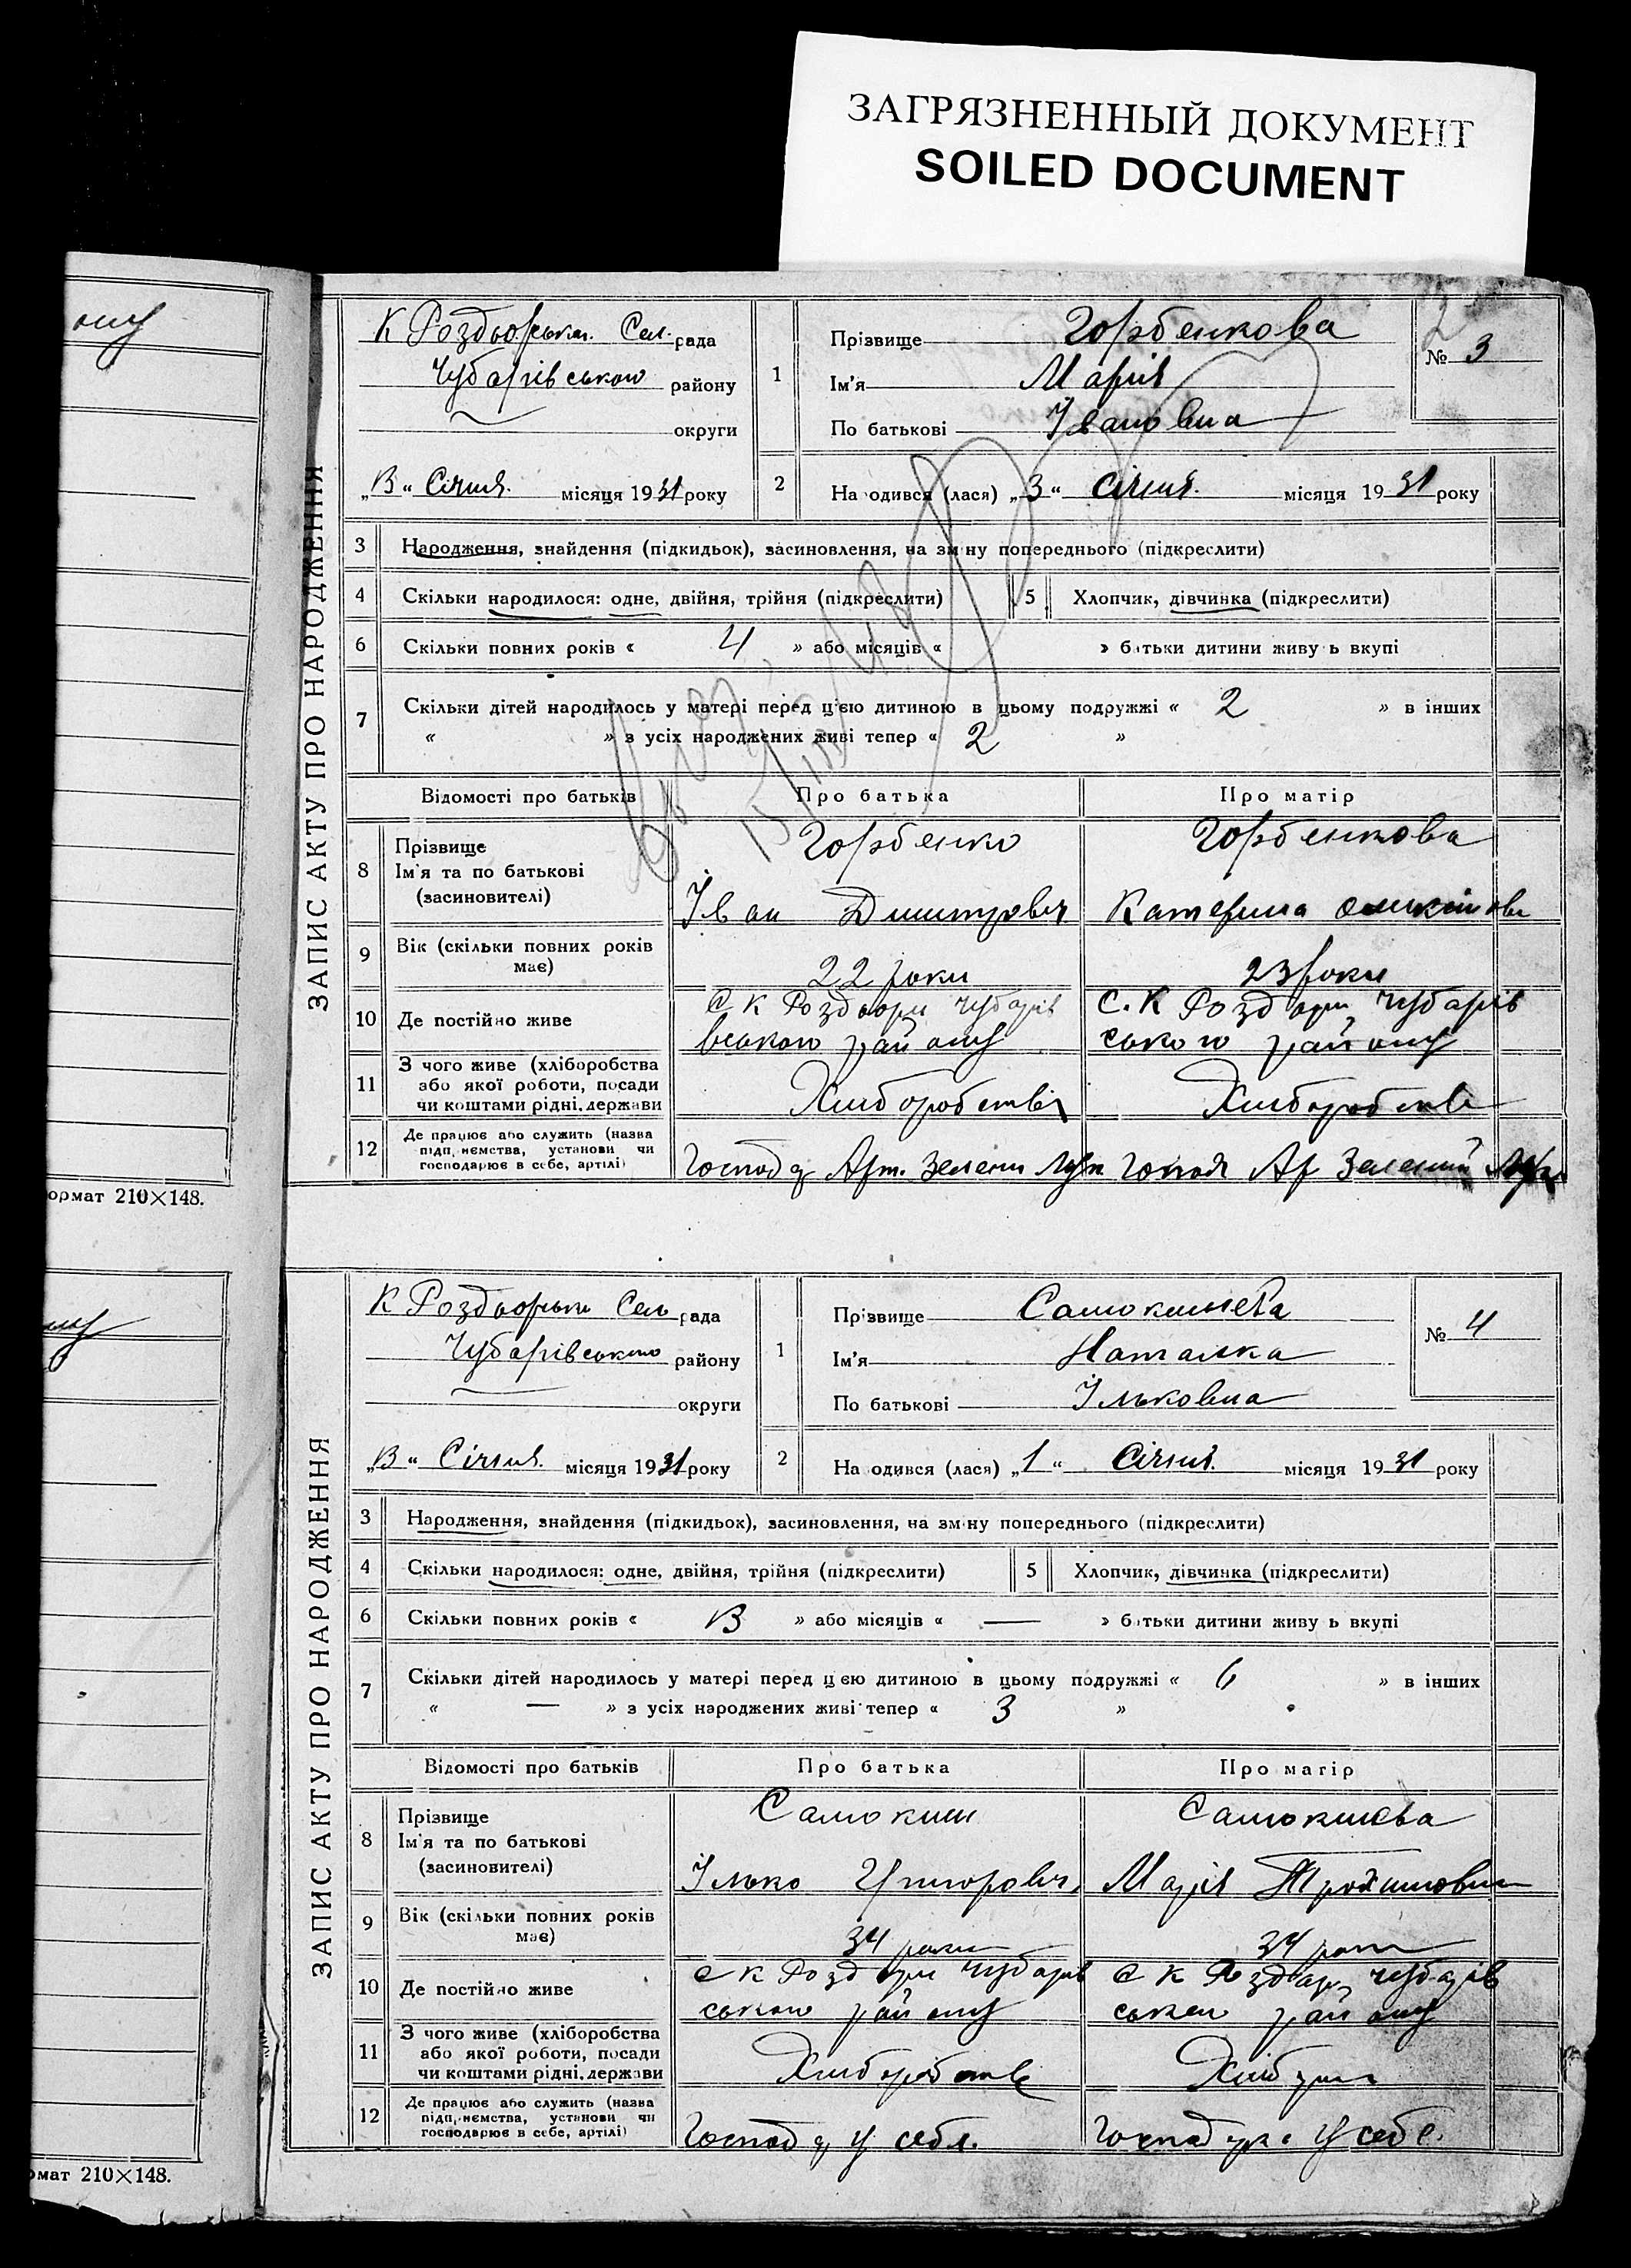 ЗАГРЯЗНЕННЫЙ ДОКУМЕНТ
SOILED DOCUMENT
ому
ормат 210×148.
рмат 210×148.
ЗАПИС АКТУ ПРО НАРОДЖЕННЯ
К Роздорськ. Сел. рада
Чубарівського району
округи
„В“ Січня. місяця 1931 року
1
Прізвище Горбенкова
Ім’я Марія
По батькові Івановна
№ 3
2
На одився (лася) „3“ Січня. місяця 1931 року
3 Народження, знайдення (підкидьок), засиновлення, на зм ну попереднього (підкреслити)
4 Скільки народилося: одне, двійня, трійня (підкреслити) 5 Хлопчик, дівчинка (підкреслити)
6 Скільки повних років « 4 » або місяців « » батьки дитини живу ь вкупі
7 Скільки дітей народилось у матері перед цією дитиною в цьому подружжі « 2 » в інших
« » з усіх народжених живі тепер « 2 »
Відомості про батьків Про батька Про матір
8 Прізвище Горбенко Горбенкова
Ім’я та по батькові
(засиновителі) Іван Дмитрович Катерина
9 Вік (скільки повних років
має) 22 роки 23 роки
10 Де постійно живе С К Роздори Чубарів С. К Роздори Чубарів
вського району ського району
11 З чого живе (хліборобства
або якої роботи, посади Хліборобства Хліборобства
чи коштами рідні, держави
12 Де працює або служить (назва
підп, немства, установи чи
господарює в себе, артілі) Господ Арт. Зелени Арт Зелений
ЗАПИС АКТУ ПРО НАРОДЖЕННЯ
К Роздорськ Сел рада
Чубарівського району
округи
„В“ Січня. місяця 1931 року
1
Прізвище Самокишева
Ім’я Наталка
По батькові Ільковна
№ 4
2
На одився (лася) „1“ Січня. місяця 1931 року
3 Народження, знайдення (підкидьок), засиновлення, на зм ну попереднього (підкреслити)
4 Скільки народилося: одне, двійня, трійня (підкреслити) 5 Хлопчик, дівчинка (підкреслити)
6 Скільки повних років « В » або місяців « — » батьки дитини живу ь вкупі
7 Скільки дітей народилось у матері перед ц єю дитиною в цьому подружжі « 6 » в інших
« — » з усіх народжених живі тепер « 3 »
Відомості про батьків Про батька Про матір
8 Прізвище Самокиш Самокишева
Ім’я та по батькові
(засиновителі) Ілько Григорович Марія Трохимовна
9 Вік (скільки повних років
має) 34 роки 34 роки
10 Де постійно живе С К Роздори Чубарів С К Роздори Чубарів
ського району ського району
11 З чого живе (хліборобства
або якої роботи, посади Хліборобств
чи коштами рідні, держави
12 Де працює або служить (назва
підп, немства, установи чи
господарює в себе, артілі) Господ у себя. у себе.